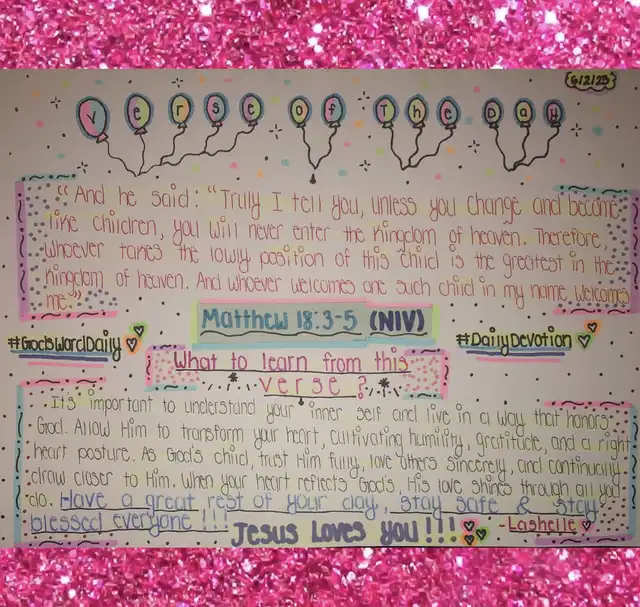 6/2/25
Verse Of The Day
“And he said: “Truly I tell you, unless you change and become
like children, you will never enter the kingdom of heaven. Therefore,
whoever takes the lowly position of this child is the greatest in the
kingdom of heaven. And whoever welcomes one such child in my name welcomes
me.”
Matthew 18:3-5 (NIV)
#GodsWordDaily
#DailyDevotion
What to learn from this
verse?
It's important to understand your inner self and live in a way that honors
God. Allow Him to transform your heart, cultivating humility, gratitude, and a right
heart posture. As God's child, trust Him fully, love others sincerely, and continually
draw closer to Him. When your heart reflects God's, His love shines through all you
do. Have a great rest of your day, stay safe & stay
blessed everyone!!! Jesus Loves you!!! -Lashelle